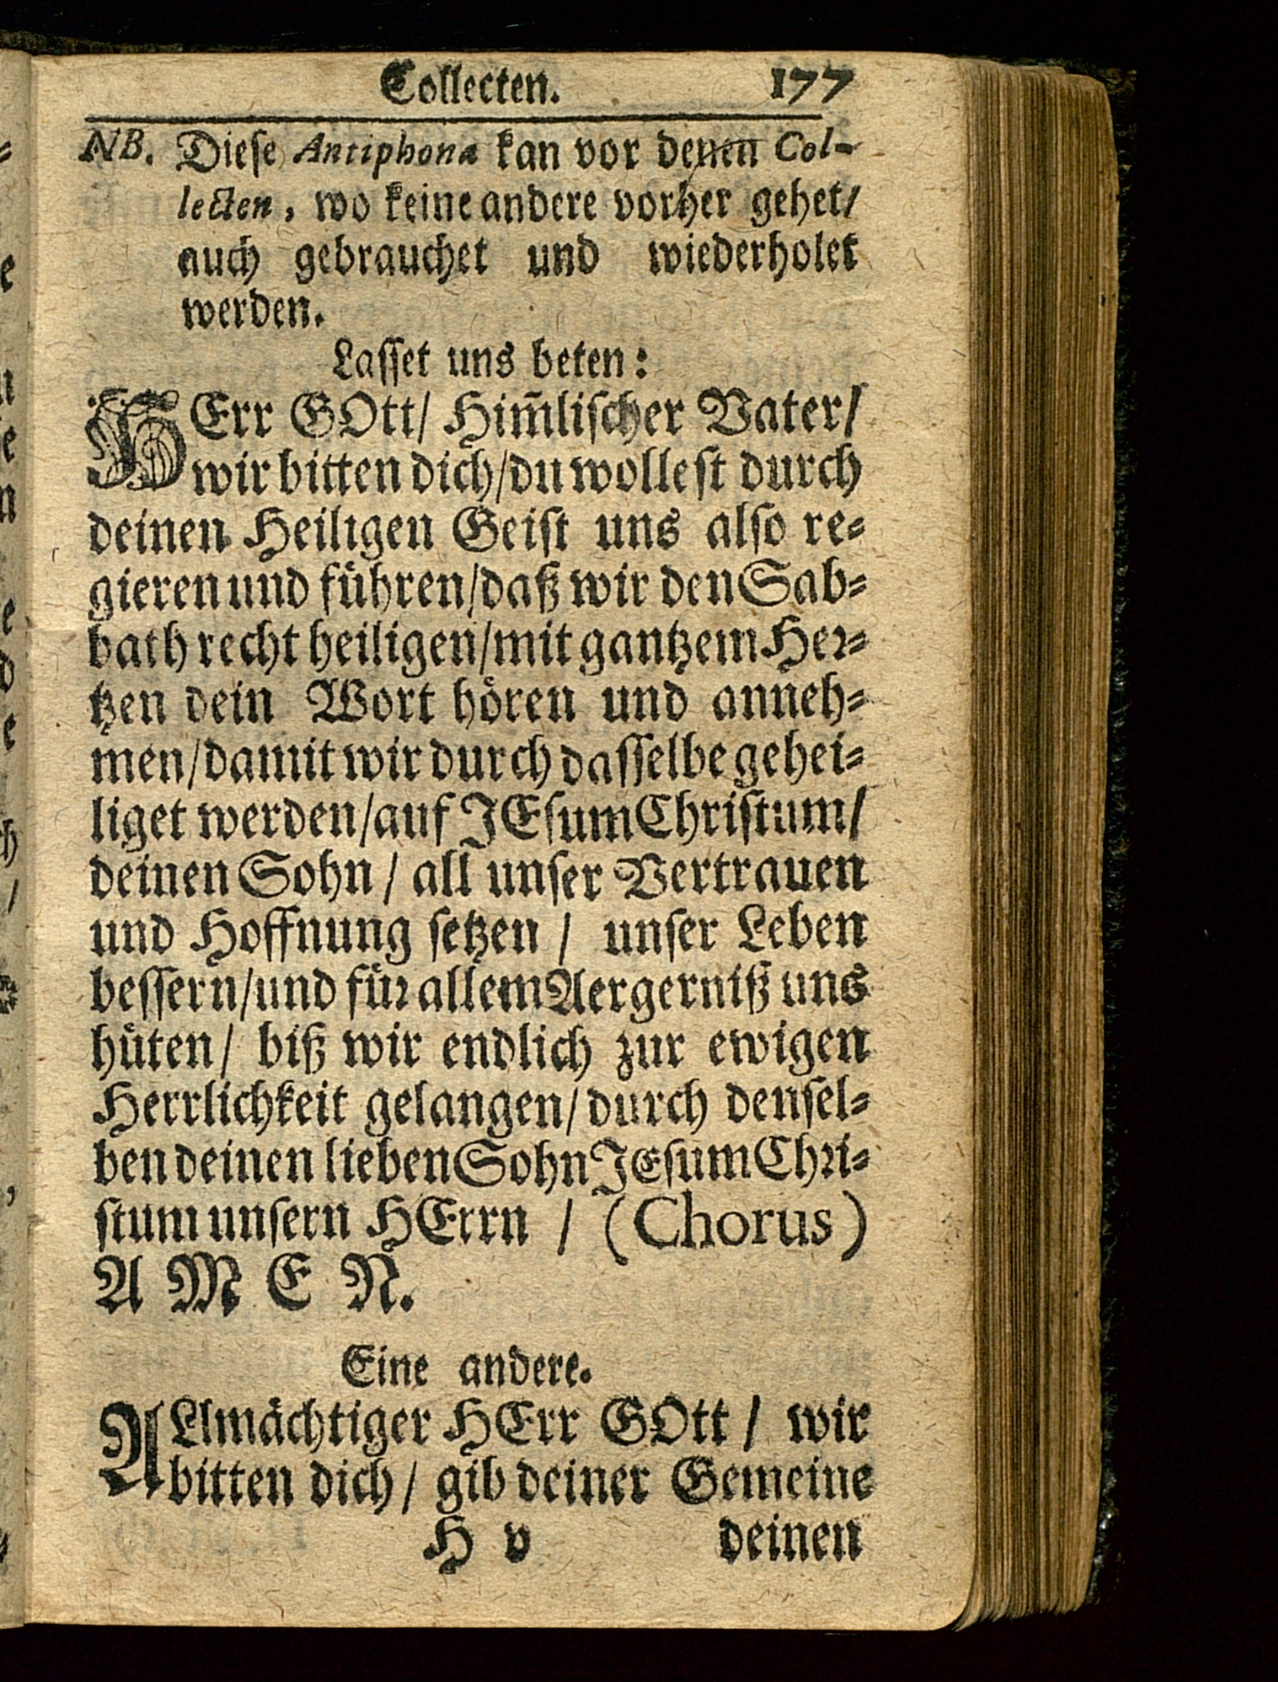 Collecten. 177
NB. Diese Antiphona kan vor denen Col-
lecten, wo keine andere vorher gehet/
auch gebrauchet und wiederholet
werden.
Lasset uns beten:
HErr GOtt/ Him̃lischer Vater/
wir bitten dich/du wollest durch
deinen Heiligen Geist uns also re-
gieren und führen/daß wir den Sab-
bath recht heiligen/mit gantzem Her-
tzen dein Wort hören und anneh-
men/damit wir durch dasselbe gehei-
liget werden/auf JEsum Christum/
deinen Sohn/ all unser Vertrauen
und Hoffnung setzen/ unser Leben
bessern/und für allem Aergerniß uns
hüten/ biß wir endlich zur ewigen
Herrlichkeit gelangen/durch densel-
ben deinen lieben Sohn JEsum Chri-
stum unsern HErrn / (Chorus)
A M E N.
Eine andere.
ALlmächtiger HErr GOtt / wir
bitten dich/ gib deiner Gemeine
H v deinen